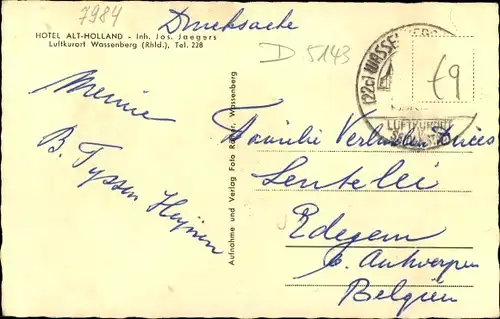 7984
Drucksache
HOTEL ALT-HOLLAND - Inh. Jos. Jaegers
Luftkurort Wassenberg (Rhld.), Tel. 228
D 5143
(22c) WASSENBERG
LUFTKURORT
£9
Meine
B. Tyssen Heynen
Aufnahme und Verlag Foto Rütger, Wassenberg
Familie Verhulen
Lentelei
Edegem
b. Antwerpen
Belgien